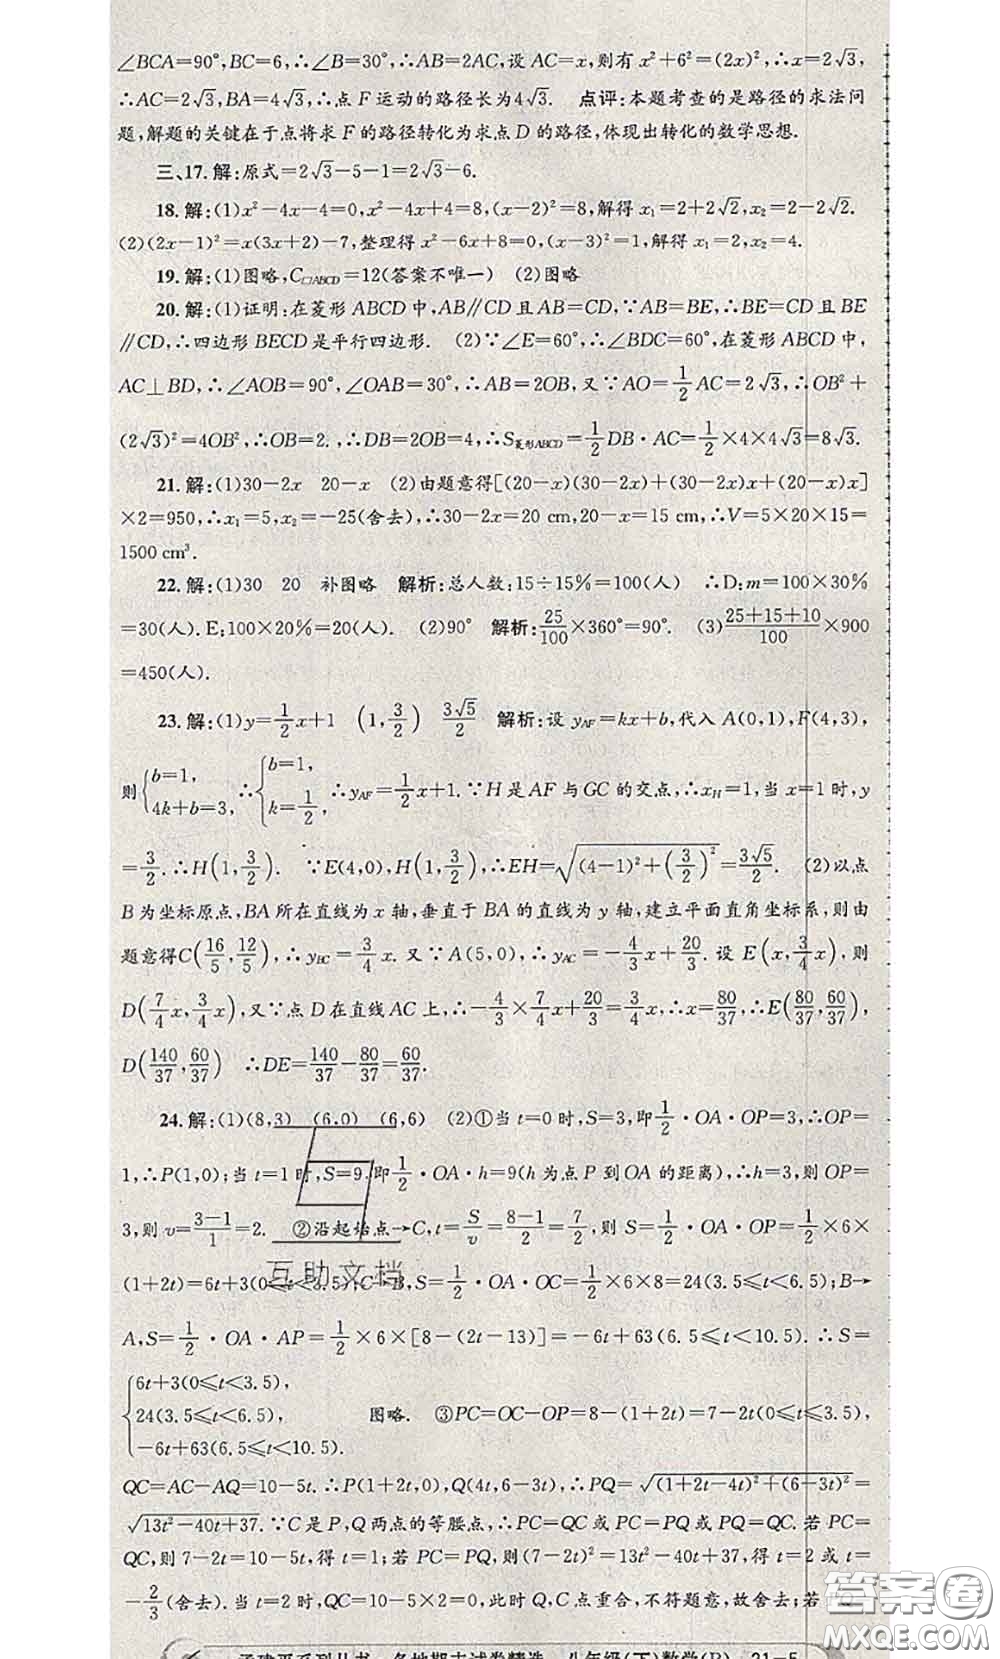 ∠BCA=90°,BC=6,∴∠B=30°,∴AB=2AC,设AC=x,则有x²+6²=(2x)²,∴x=2√3,
∴AC=2√3,BA=4√3,∴点F运动的路径长为4√3. 点评:本题考查的是路径的求法问
题,解题的关键在于点将求F的路径转化为求点D的路径,体现出转化的数学思想.
三、17.解:原式=2√3-5-1=2√3-6.
18.解:(1)x²-4x-4=0,x²-4x+4=8,(x-2)²=8,解得x₁=2+2√2,x₂=2-2√2.
(2)(2x-1)²=x(3x+2)-7,整理得x²-6x+8=0,(x-3)²=1,解得x₁=2,x₂=4.
19.解:(1)图略,C□ABCD=12(答案不唯一) (2)图略
20.解:(1)证明:在菱形ABCD中,AB∥CD且AB=CD,∵AB=BE,∴BE=CD且BE
∥CD,∴四边形BECD是平行四边形. (2)∵∠E=60°,∴∠BDC=60°,在菱形ABCD中,
AC⊥BD,∴∠AOB=90°,∠OAB=30°,∴AB=2OB,又∵AO=1/2AC=2√3,∴OB²+
(2√3)²=4OB²,∴OB=2.,∴DB=2OB=4,∴S菱形ABCD=1/2DB·AC=1/2×4×4√3=8√3.
21.解:(1)30-2x 20-x (2)由题意得[(20-x)(30-2x)+(30-2x)x+(20-x)x]
×2=950,∴x₁=5,x₂=-25(舍去),∴30-2x=20 cm,20-x=15 cm,∴V=5×20×15=
1500 cm³.
22.解:(1)30 20 补图略 解析:总人数:15÷15%=100(人) ∴D:m=100×30%
=30(人).E:100×20%=20(人). (2)90° 解析:25/100×360°=90°. (3)(25+15+10)/100×900
=450(人).
23.解:(1)y=1/2x+1 (1,3/2) 3√5/2 解析:设yAF=kx+b,代入A(0,1),F(4,3),
则{b=1,4k+b=3,∴{b=1,k=1/2,∴yAF=1/2x+1.∵H是AF与GC的交点,∴xH=1,当x=1时,y
=3/2.∴H(1,3/2). ∵E(4,0),H(1,3/2),∴EH=√((4-1)²+(3/2)²)=3√5/2. (2)以点
B为坐标原点,BA所在直线为x轴,垂直于BA的直线为y轴,建立平面直角坐标系,则由
题意得C(16/5,12/5),∴yBC=3/4x.又∵A(5,0),∴yAC=-4/3x+20/3.设E(x,3/4x),则
D(7/4x,3/4x),又∵点D在直线AC上,∴-4/3×7/4x+20/3=3/4x,∴x=80/37,∴E(80/37,60/37),
D(140/37,60/37) ∴DE=140/37-80/37=60/37.
24.解:(1)(8,3) (6,0) (6,6) (2)①当t=0时,S=3,即1/2·OA·OP=3,∴OP=
1,∴P(1,0);当t=1时,S=9,即1/2·OA·h=9(h为点P到OA的距离),∴h=3,则OP=
3,则v=(3-1)/1=2. ②沿起始点→C,t=S/v=(8-1)/2=7/2,则S=1/2·OA·OP=1/2×6×
(1+2t)=6t+3(0≤t≤3.5);C→B,S=1/2·OA·OC=1/2×6×8=24(3.5≤t<6.5);B→
A,S=1/2·OA·AP=1/2×6×[8-(2t-13)]=-6t+63(6.5≤t<10.5).∴S=
{6t+3(0≤t<3.5),
24(3.5≤t<6.5), 图略. ③PC=OC-OP=8-(1+2t)=7-2t(0≤t≤3.5),
-6t+63(6.5≤t≤10.5).
QC=AC-AQ=10-5t.∴P(1+2t,0),Q(4t,6-3t),∴PQ=√((1+2t-4t)²+(6-3t)²)=
√(13t²-40t+37).∵C是P,Q两点的等腰点,∴PC=QC或PC=PQ或PQ=QC.若PC=
QC,则7-2t=10-5t,得t=1;若PC=PQ,则(7-2t)²=13t²-40t+37,得t=2或t=
-2/3(舍去).当t=2时,QC=10-5×2=0,此时Q,C点重合,不符题意,故舍去;若
互助文档
答案圈